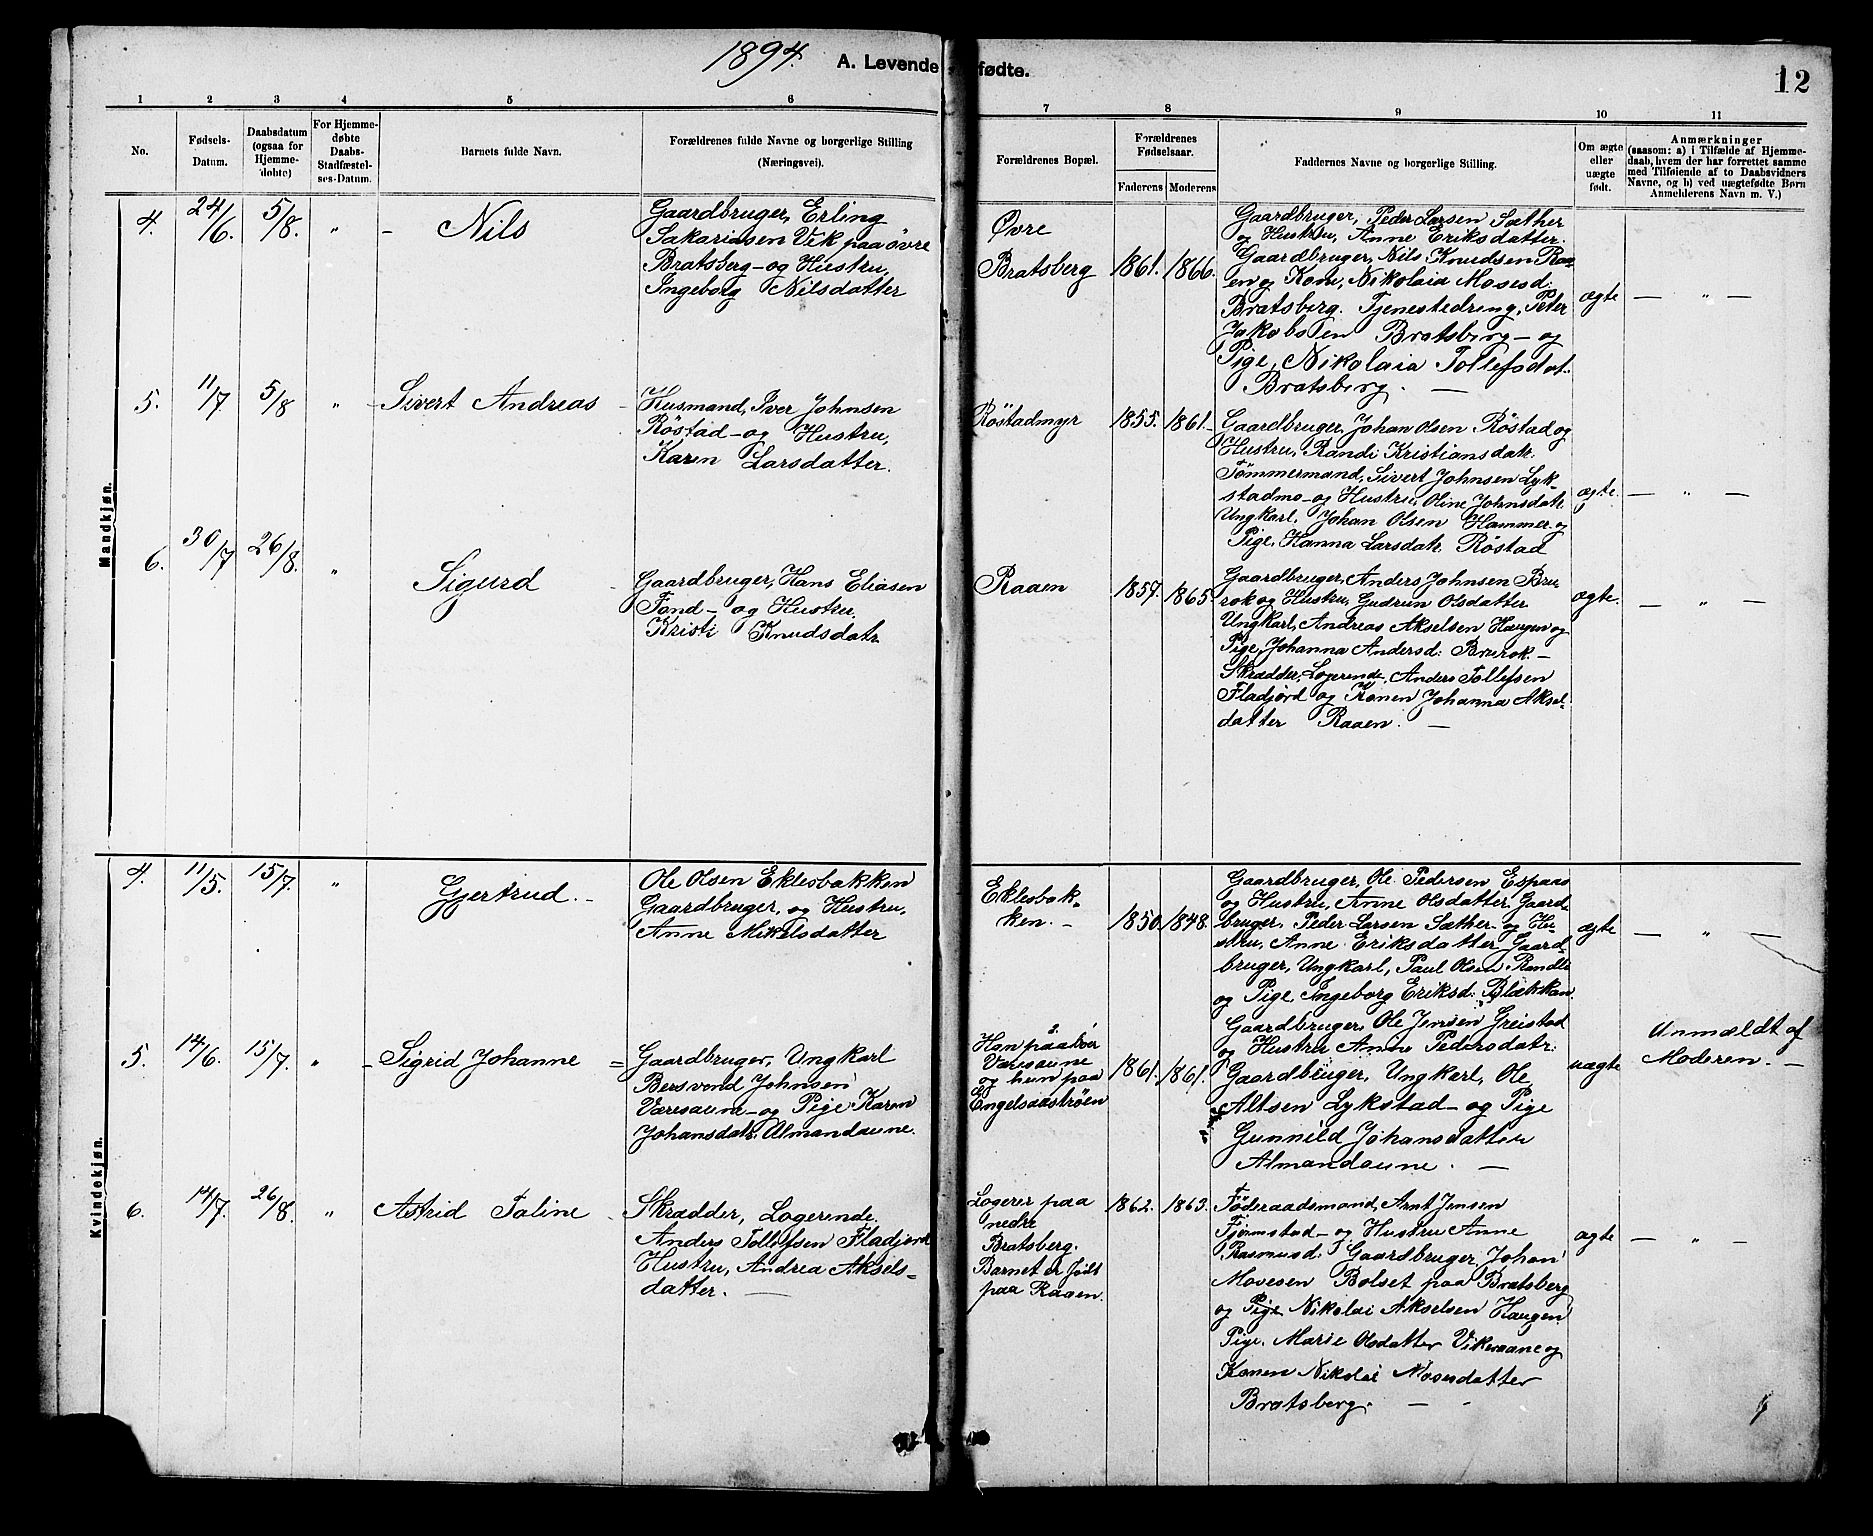 1894. A. Levende fødte. 12
1 2 3 4 5 6 7 8 9 10 11
No.
Fødsels-
Datum.
Daabsdatum
(ogsaa for
Hjemme-
døbte)
For Hjemme-
døbte
Daabs-
Stadfæstel-
ses-Datum.
Barnets fulde Navn.
Forældrenes fulde Navne og borgerlige Stilling
(Næringsvei).
Forældrenes Bopæl.
Forældrenes
Fødselsaar.
Faderens Moderens
Faddernes Navne og borgerlige Stilling.
Om ægte
eller
uægte
født.
Anmærkninger
(saasom: a) i Tilfælde af Hjemme-
daab, hvem der har forrettet samme
med Tilføiende af to Daabsvidners
Navne, og b) ved uægtefødte Børn
Anmelderens Navn m. V.)
Mandkjøn.
4. 24/6. 5/8. " - Nils
Gaardbruger, Erling
Sakariasen Vik paa øvre
Bratsberg - og Hustru,
Ingeborg Nilsdatter
Øvre
Bratsberg
1861. 1866.
Gaardbruger, Peder Larsen Sæther
og Hustru, Anne Eriksdatter.
Gaardbruger, Nils Knudsen Raa-
en og Kone, Nikolaia Mosesd:
Bratsberg. Tjenestedreng, Peter
Jakobsen Bratsberg - og
Pige, Nikolaia Tollefsdat.
Bratsberg. —
ægte — " —
5. 11/7 5/8 " - Sivert Andreas -
Husmand, Iver Johnsen
Röstad - og Hustru,
Karen Larsdatter.
Röstadmyr
1855. 1861.
Gaardbruger, Johan Olsen Röstad og
Hustru, Randi Kristiansdatr.
Tömmermand, Sivert Johnsen Lyk-
stadmo - og Hustru, Oline Johnsdatr.
Ungkarl, Johan Olsen Hammer og
Pige, Hanna Larsdatr. Röstad
ægte. — " —
6. 30/7 26/8. " Sigurd -
Gaardbruger, Hans Eliasen
Fond - og Hustru,
Kristi Knudsdatr.
Raaen
1857. 1865.
Gaardbruger, Anders Johnsen Bru-
rok og Hustru, Gudrun Olsdatter
Ungkarl, Andreas Akselsen Haugen og
Pige, Johanna Andersd: Brurok. -
Skrædder, Logerende, Anders Tollefsen
Fladjord og Konen Johanna Aksel-
datter Raaen. —
ægte. — " —
Kvindekjøn.
4. 11/5. 15/7. " Gjertrud. -
Ole Olsen Eklesbakken
Gaardbruger, og Hustru,
Anne Mikelsdatter
Eklesbak-
ken. -
1850. 1848.
Gaardbruger, Ole Pedersen Espaas
og Hustru, Anne Olsdatter. Gaard-
bruger, Peder Larsen Sæther - og Hu-
stru, Anne Eriksdatter Gaard-
bruger, Ungkarl, Paul Olsen Randli
og Pige, Ingeborg Eriksd: Blækkan
ægte — " —
5. 14/6. 15/7. " - Sigrid Johanne =
Gaardbruger, Ungkarl
Bersvend Johnsen
Væresaune - og Pige Karen
Johansdatr. Almandaune.
Han paa
Væresaune
og hun paa
Engelsaaströen
1861. 1861.
Gaardbruger, Ole Jensen Greistad
og Hustru Anne Pedersdatr:
Gaardbruger, Ungkarl, Ole
Altsen Lykstad - og Pige
Gunnild Johansdatter
Almandaune. —
uægte
Anmeldt af
Moderen. -
6. 14/7. 26/8. " Astrid Taline -
Skrædder, Logerende.
Anders Tollefsen Fladjord
Hustru, Andrea Aksels=
datter. —
Logerer paa
nedre
Bratsberg.
Barnet er født
paa Raaen.
1862. 1863.
Föderaadsmand, Arnt Jensen
Tjømstad - og Hustru Anne
Rasmusd: Gaardbruger, Johan
Movesen Bolset paa Bratsberg
og Pige Nikolai Akselsen Haugen
Pige, Marie Olsdatter Vikeraane og
Konen Nikolai Mosesdatter
Bratsberg. — -
ægte — " —